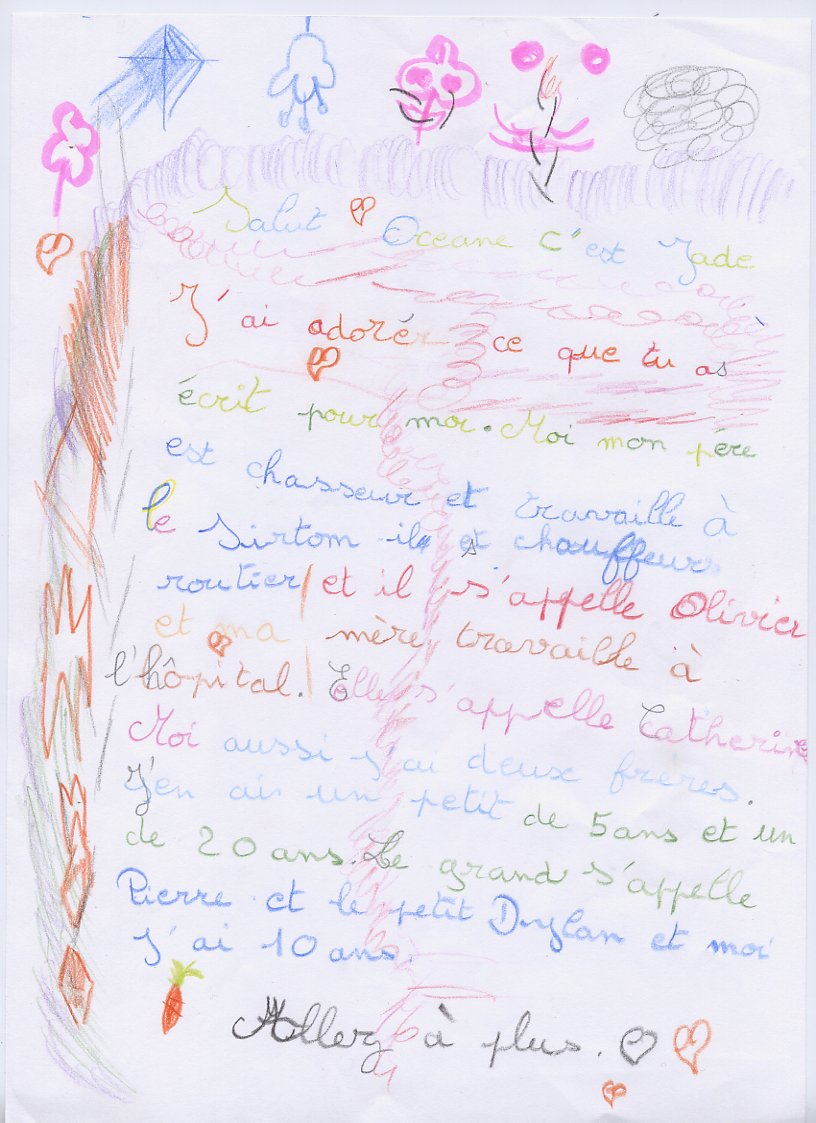 Salut Oceane c'est Jade
J'ai adorér ce que tu as
écrit pour moi. Moi mon père
est chasseur et travaille à
le Sirtom il est chauffeur
routier et il s'appelle Olivier
et ma mère travaille à
l'hôpital. Elle s'appelle Catherine
Moi aussi j'ai deux frères.
J'en ais un petit de 5 ans et un
de 20 ans. Le grand s'appelle
Pierre et le petit Dylan et moi
J'ai 10 ans.
Allez à plus.